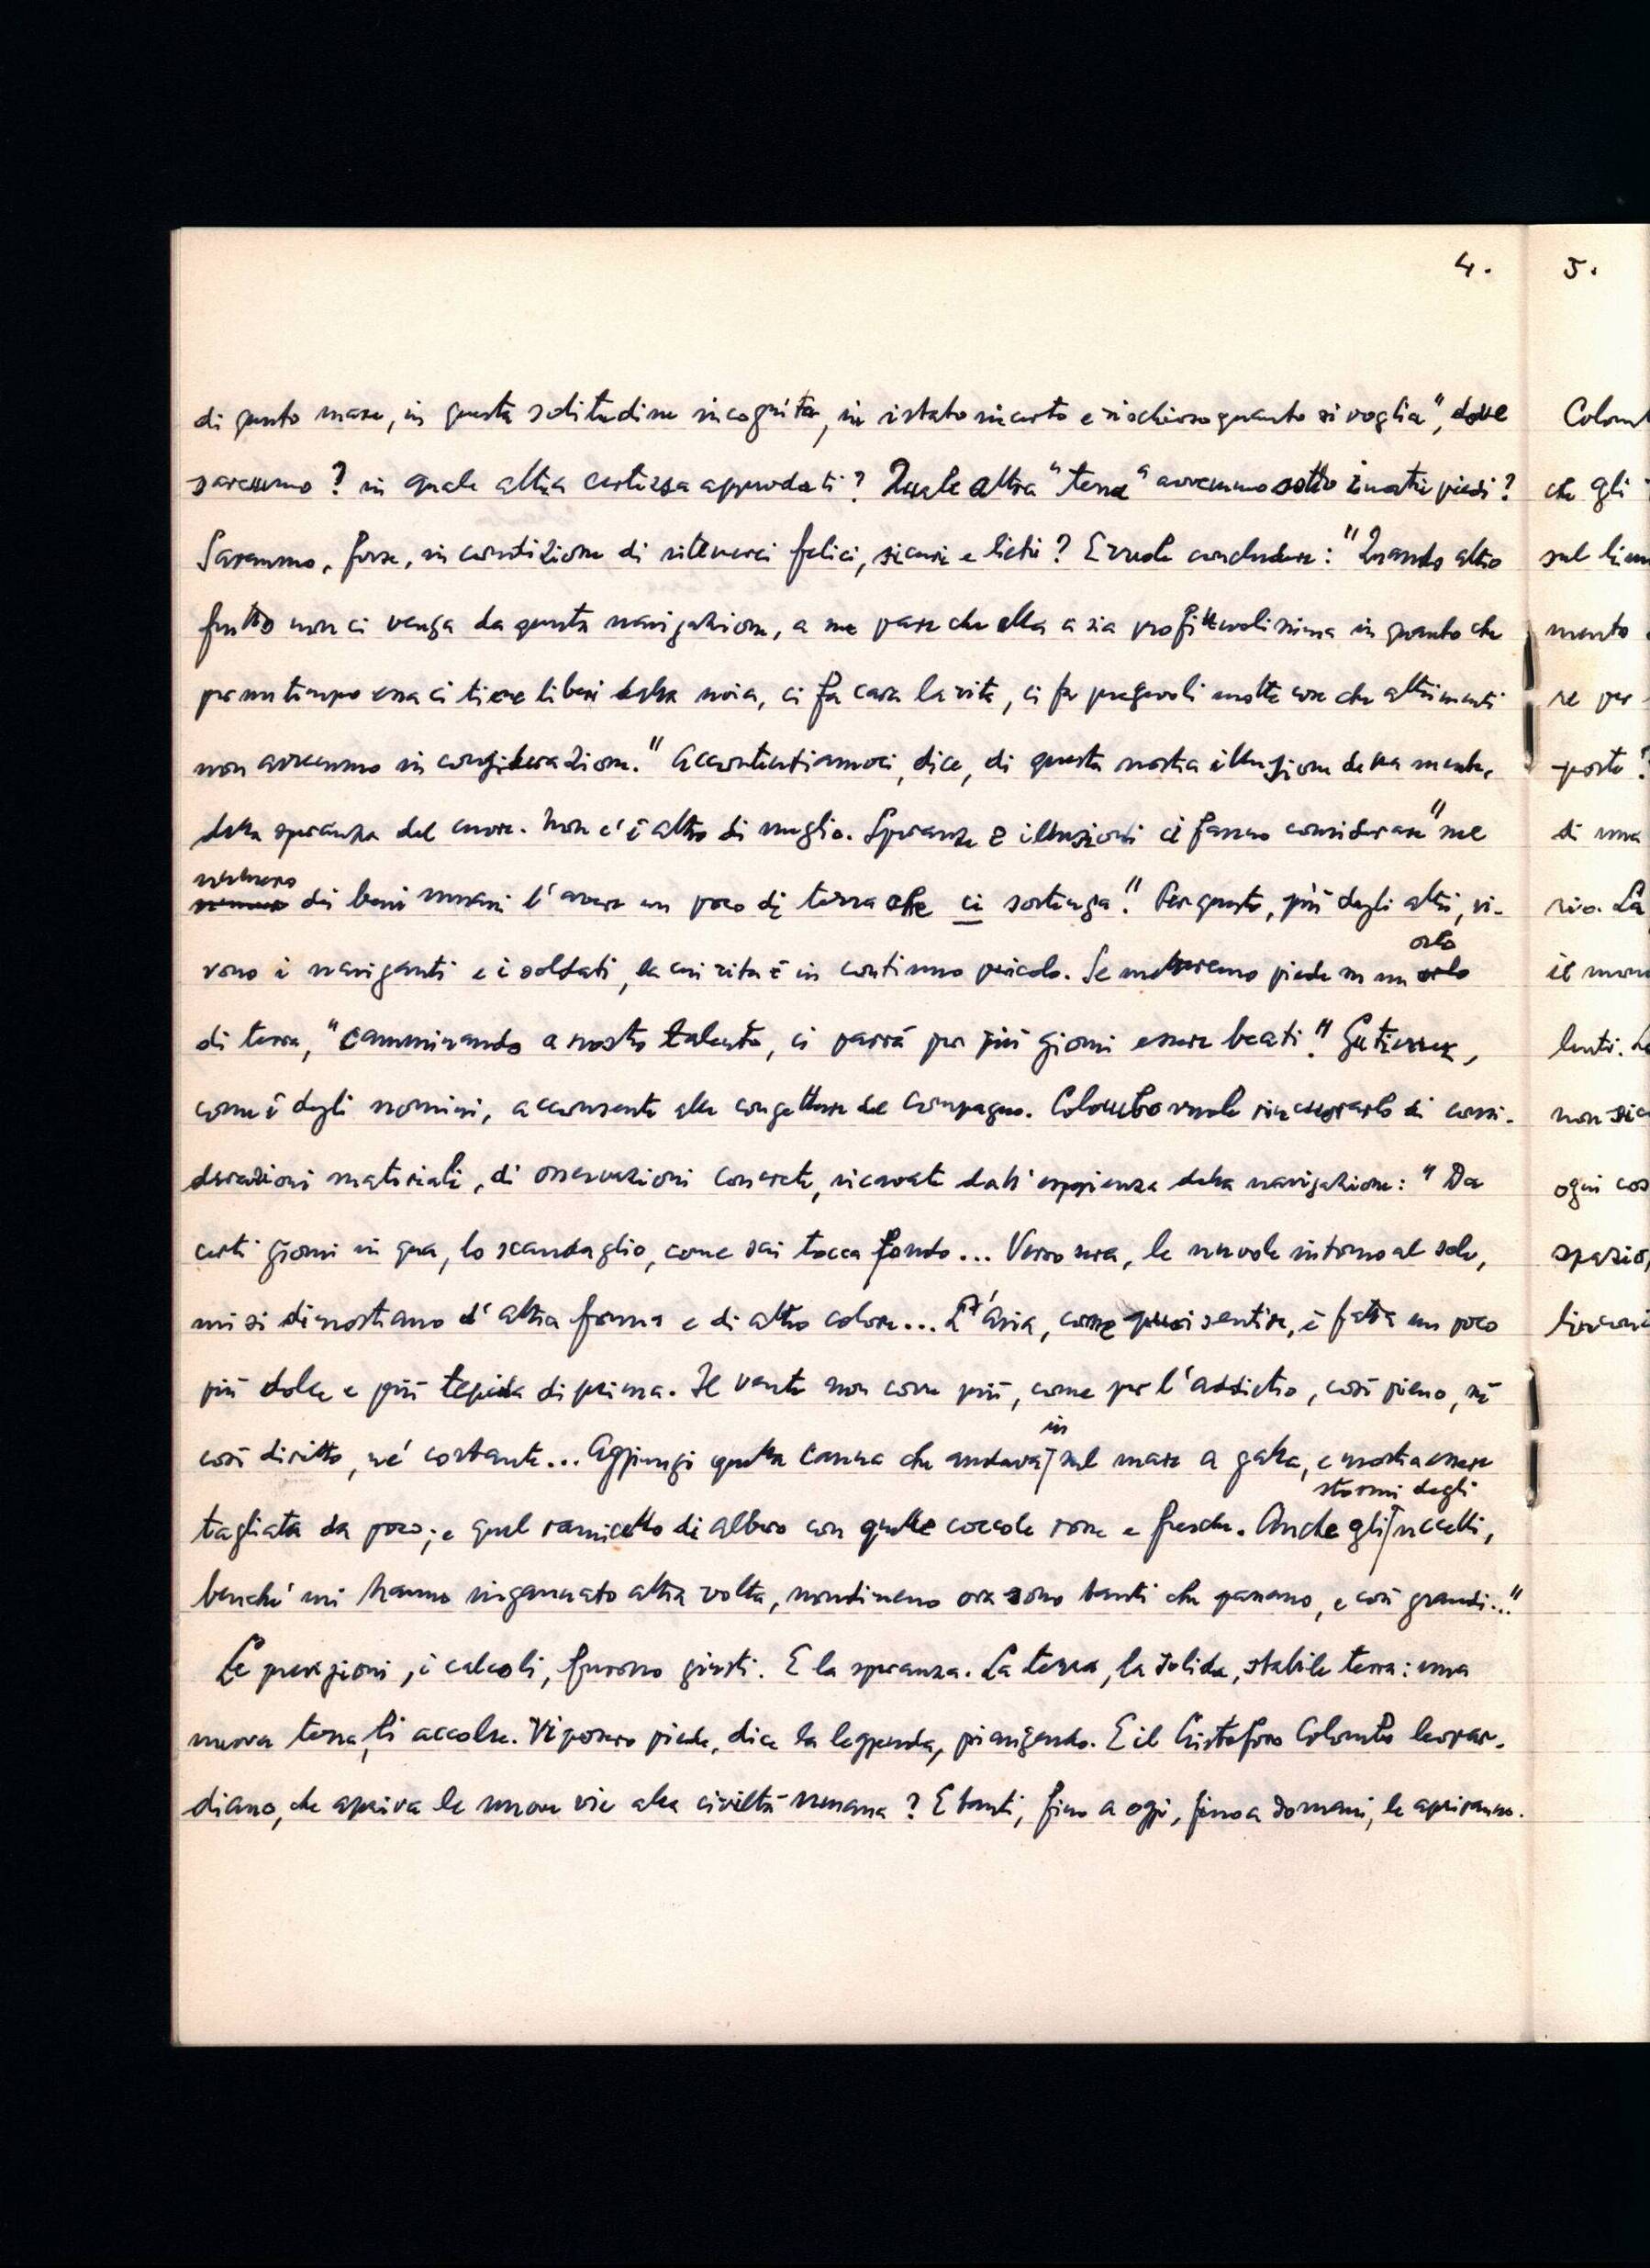 4.
di questo mare, in questa solitudine incognita, in istato incerto e rischioso quanto si voglia", dove
saremmo? in quale altra certezza approdati? Quale altra "terra" avremmo sotto i nostri piedi?
Saremmo, forse, in condizione di ritenerci felici, sicuri e lieti? E vuole concludere: "Quando altro
frutto non ci venga da questa navigazione, a me pare che ella ci sia profittevolissima in quanto che
per un tempo essa ci tiene liberi dalla noia, ci fa cara la vita, ci fa pregevoli molte cose che altrimenti
non avremmo in considerazione." Accontentiamoci, dice, di questa nostra illusione della mente,
della speranza del cuore. Non c'è altro di meglio. Speranze e illusioni ci fanno considerare "nel
numero
di beni umani l'avere un poco di terra che ci sostenga". Per questo, più degli altri, vi-
orlo
vono i naviganti e i soldati, la cui vita è in continuo pericolo. Se metteremo piede su un orlo
di terra, "camminando a nostro talento, ci parrà per più giorni essere beati." Gutierrez,
come è degli uomini, acconsente alle congetture del compagno. Colombo vuole rincuorarlo di consi-
derazioni materiali, di osservazioni concrete, ricavate dall'esperienza della navigazione: "Da
certi giorni in qua, lo scandaglio, come sai tocca fondo... Verso sera, le nuvole intorno al sole,
mi si dimostrano d'altra forma e di altro colore... L'aria, come puoi sentire, è fatta un poco
più dolce e più tepida di prima. Il vento non corre più, come per l'addietro, così pieno, nè
in
così diritto, nè costante... Aggiungi quella canna che andava sul mare a galla, e mostra essere
stormi degli
tagliata da poco; e quel ramicello di albero con quelle coccole rosse e fresche. Anche gli uccelli,
benchè mi hanno ingannato altra volta, nondimeno ora sono tanti che passano, e così grandi..."
Le previsioni, i calcoli, furono giusti. E la speranza. La terra, la solida, stabile terra: una
nuova terra, li accolse. Vi posero piede, dice la leggenda, piangendo. E il Cristoforo Colombo leopar-
diano, che apriva le nuove vie alla civiltà umana? E tanti, fino a oggi, fino a domani, le apriranno.
5.
Colomb
che gli
sul lim
mento
re per
porto?
di una
rio. La
il mon
lenti. Le
non sic
ogni cos
spazio,